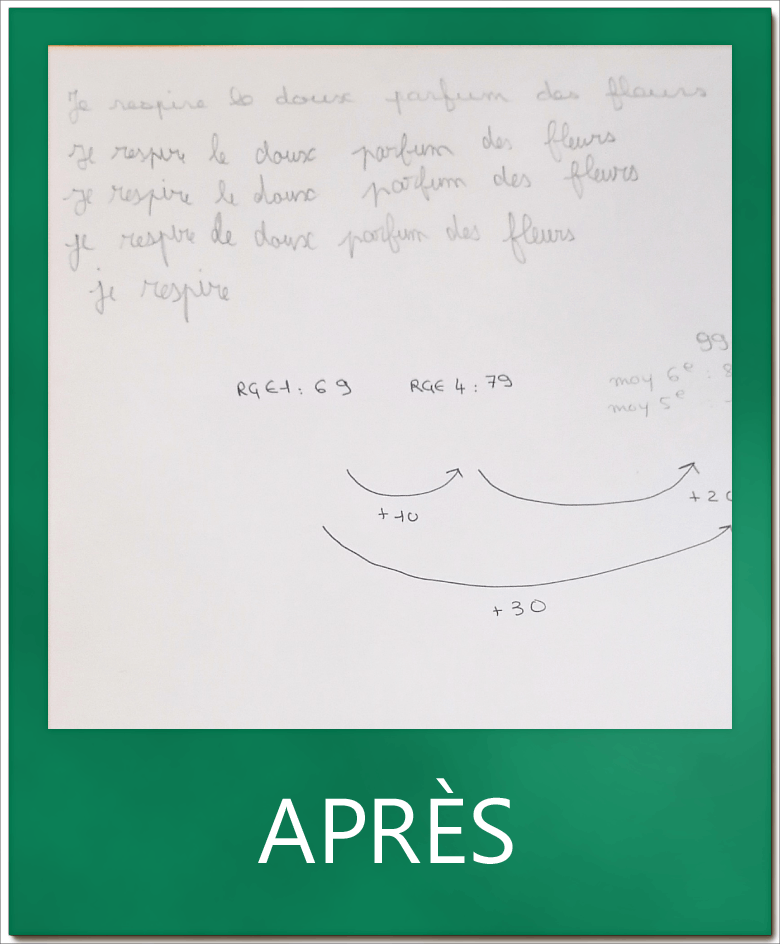 Je respire le doux parfum des fleurs
je respire le doux parfum des fleurs
je respire le doux parfum des fleurs
je respire de doux parfum des fleurs
je respire
99
RGE1 : 69 RGE 4 : 79 moy 6e : 8
moy 5e : -
+10 +20
+30
APRÈS